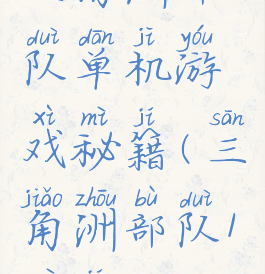 duì dān jī yóu
队单机游
xì mì jí sān
戏秘籍(三
jiǎo zhōu bù duì
角洲部队/